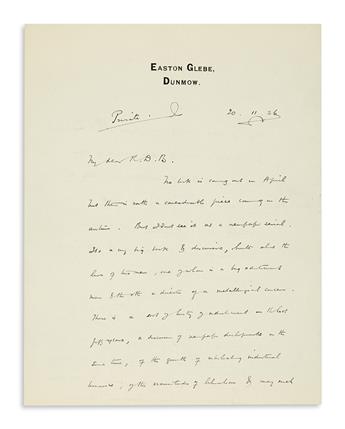 EASTON GLEBE,
DUNMOW.
Private.
20. 11. 26
My dear R. D. B.
No book is coming out in April
but there is rather a considerable piece coming in the
autumn. But I don't see it as a newspaper serial.
It's a very big book & discursive, built about the
lives of two men, one of whom is a big advertisement
man & the other a director of a metallurgical concern.
There is a sort of history of advertisement in the last
fifty years, a discussion of newspaper developments in the
same time, of the growth of interlocking industrial
, of the of & very much